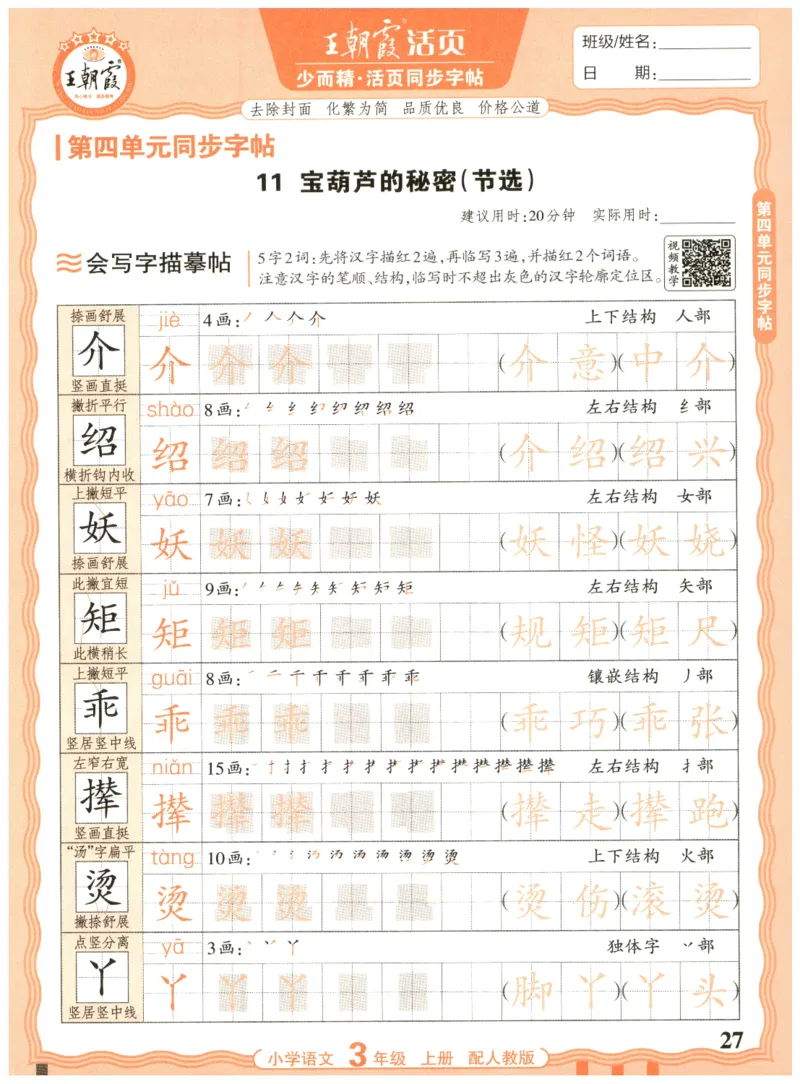 王朝霞®活页
少而精·活页同步字帖
班级/姓名:
日 期:
王朝霞
去除封面 化繁为简 品质优良 价格公道
第四单元同步字帖
11 宝葫芦的秘密(节选)
建议用时:20分钟 实际用时:
会写字描摹帖
5字2词:先将汉字描红2遍,再临写3遍,并描红2个词语。
注意汉字的笔顺、结构,临写时不超出灰色的汉字轮廓定位区。
视频教学
第四单元同步字帖
捺画舒展 jiè 4画: 上下结构 人部
介 介 介 介 (介 意)(中 介)
竖画直挺
撇折平行 shào 8画: 左右结构 纟部
绍 绍 绍 绍 (介 绍)(绍 兴)
横折钩内收
上撇短平 yāo 7画: 左右结构 女部
妖 妖 妖 妖 (妖 怪)(妖 娆)
捺画舒展
此撇宜短 jǔ 9画: 左右结构 矢部
矩 矩 矩 矩 (规 矩)(矩 尺)
此横稍长
上撇短平 guāi 8画: 镶嵌结构 丿部
乖 乖 乖 乖 (乖 巧)(乖 张)
竖居竖中线
左窄右宽 niǎn 15画: 左右结构 扌部
撵 撵 撵 撵 (撵 走)(撵 跑)
竖画直挺
“汤”字扁平 tàng 10画: 上下结构 火部
烫 烫 烫 烫 (烫 伤)(滚 烫)
撇捺舒展
点竖分离 yā 3画: 独体字 丷部
丫 丫 丫 丫 (脚 丫)(丫 头)
竖居竖中线
27
小学语文 3年级 上册 配人教版